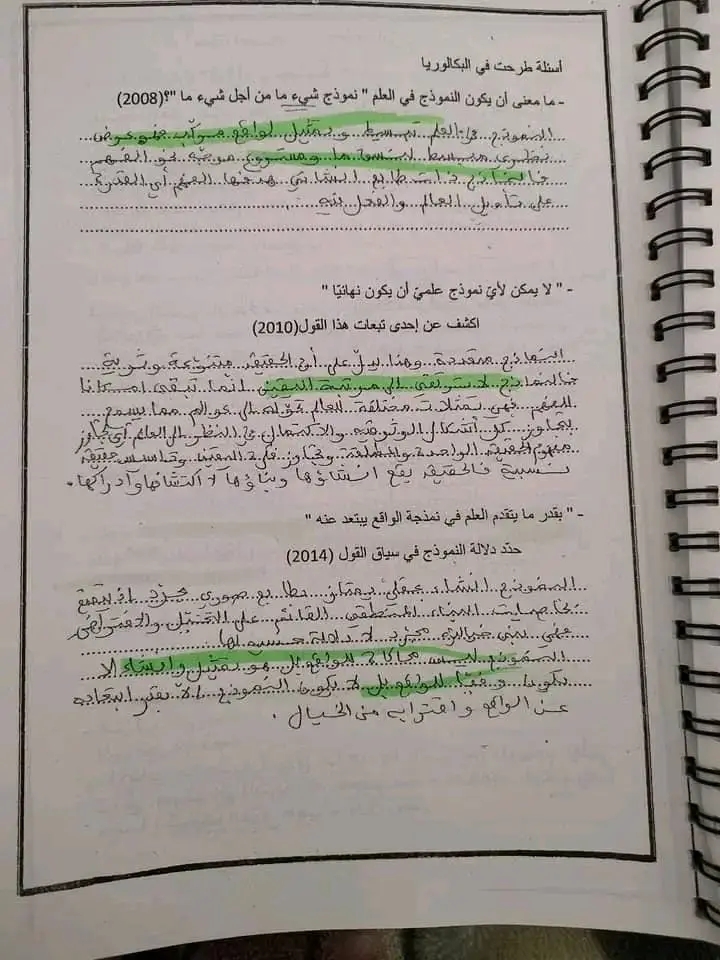 أسئلة طرحت في البكالوريا
- ما معنى أن يكون النموذج في العلم " نموذج شيء ما من أجل شيء ما "؟(2008)
النموذج في العلم تبسيط وتمثيل لواقع مركّب فهو عرض
نظري مبسط لنسق ما ومشروع موجّه نحو الفهم
فالنماذج ذات طابع إنشائي هدفها الفهم أي القدرة
على تأويل العالم والفعل فيه
- " لا يمكن لأيّ نموذج علميّ أن يكون نهائيّا "
اكشف عن إحدى تبعات هذا القول(2010)
النماذج متعددة وهذا يدلّ على أنّ الحقيقة متنوعة وثرية
فالنماذج لا ترتقي إلى مرتبة اليقين إنّما تبقى إمكانا
للفهم فهي تمثّلات مختلفة للعالم تحوّله إلى عوالم مما يسمح
بتجاوز كل أشكال الوثوقية والاكتمال في النظر إلى العالم أي تجاوز
مفهوم الحقيقة الواحدة والمطلقة وتجاوز فكرة المعنى وتأسيس حقيقة
نسبية فالحقيقة يقع إنشاؤها وبناؤها لا اكتشافها وإدراكها.
- " بقدر ما يتقدم العلم في نمذجة الواقع يبتعد عنه "
حدّد دلالة النموذج في سياق القول (2014)
النموذج إنشاء عقلي يمتاز بطابع صوري مجرّد إذ يتمتع
بخاصيات البناء المنطقي القائم على التخيّل والافتراض
فهي بنى خيالية مجردة لا دلالة حسية لها
النموذج ليس محاكاة للواقع بل هو تمثيل وإنشاء إلا
يكون وفيّا للواقع بل لا يكون النموذج إلا بقدر ابتعاده
عن الواقع واقترابه من الخيال.